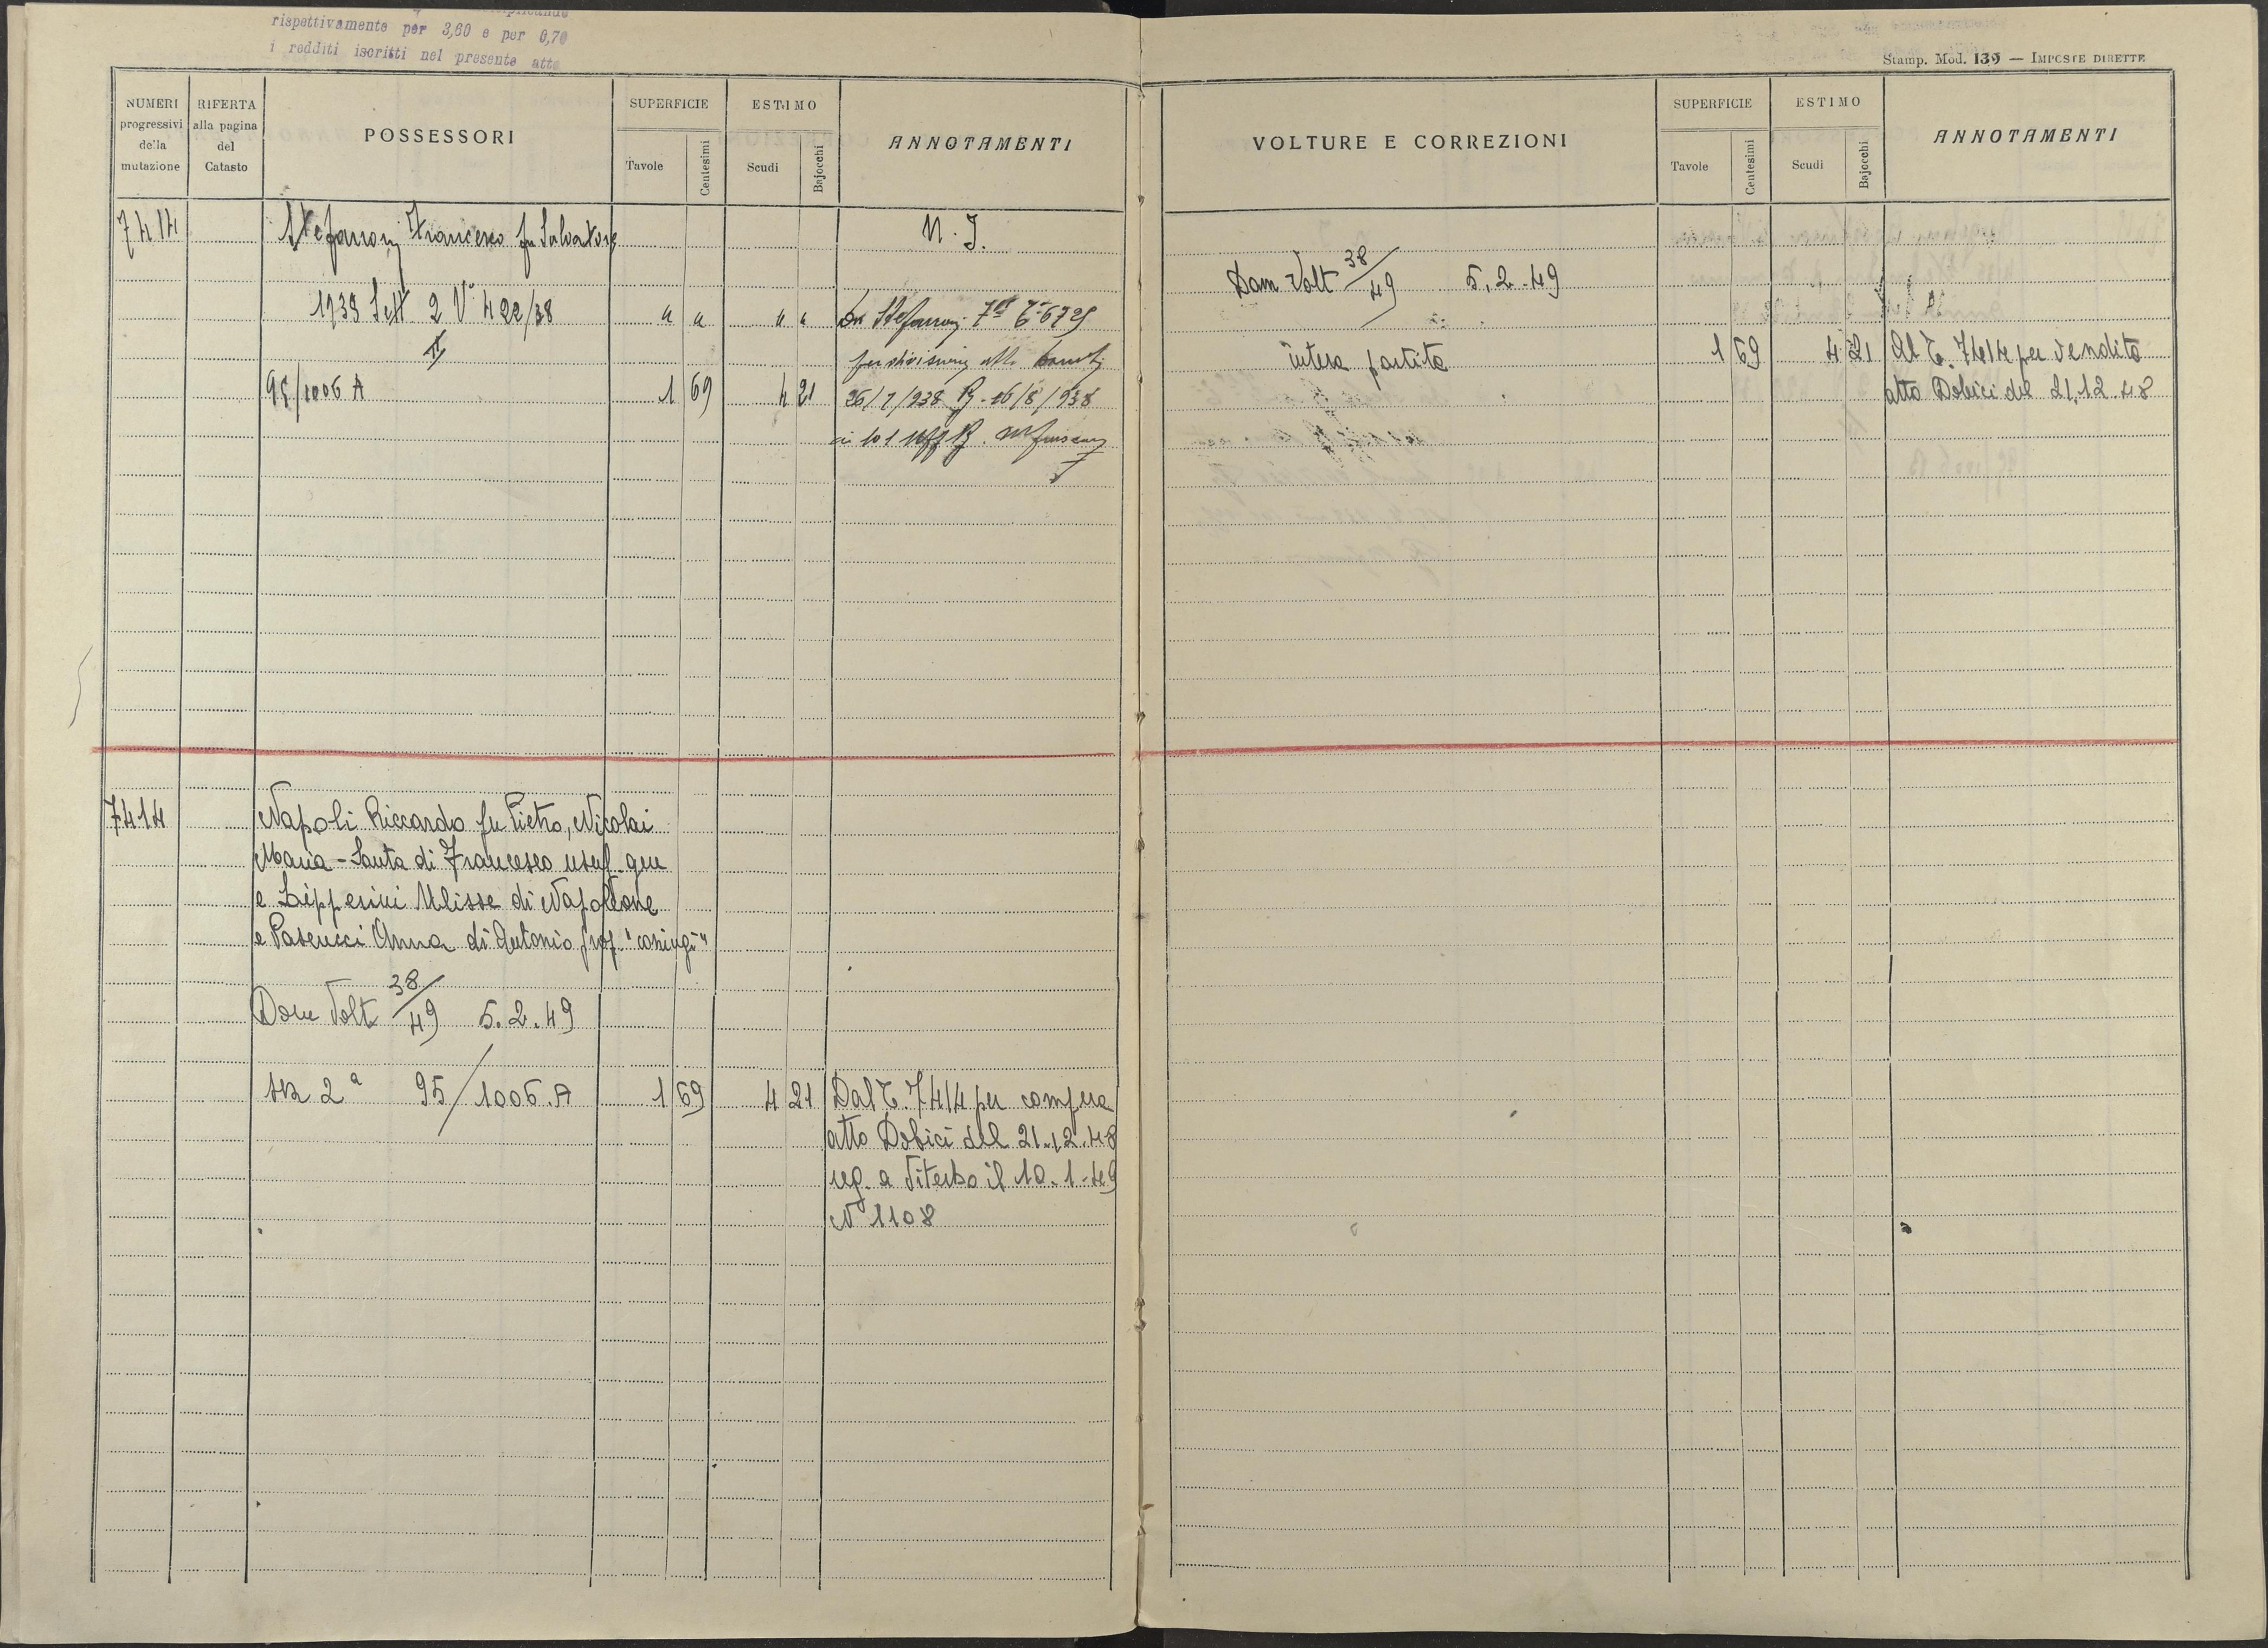 rispettivamente per 3,60 e per 0,70
i redditi iscritti nel presente atto
NUMERI progressivi della mutazione
RIFERTA alla pagina del Catasto
POSSESSORI
SUPERFICIE
Tavole
Centesimi
ESTIMO
Scudi
Bajocchi
ANNOTAMENTI
7414
Stefanoni Francesco fu Salvatore
N. I.
1939 Sett 2 V° 422/38
" " " "
Da Stefanoni 7° T. 6729
II
per divisione atto
95/1006 A
1 69
4 21
26/7/938 R. 16/8/938
7414
Napoli Riccardo fu Pietro, Nicolai
Maria-Santa di Francesco usuf. gen
e Lipperini Ulisse di Napoleone
e Pasucci Anna di Antonio prop. "coniugi"
Dom Volt 38/49 5.2.49
sez 2ª 95/1006.A
1 69
4 21
Dal T. 7414 per compera
atto Dobici del 21.12.48
reg. a Viterbo il 10.1.49
N 1108
Stamp. Mod. 139 — IMPOSTE DIRETTE
VOLTURE E CORREZIONI
SUPERFICIE
Tavole
Centesimi
ESTIMO
Scudi
Bajocchi
ANNOTAMENTI
Dom Volt 38/49 5.2.49
intera partita
1 69
4 21
Al T. 7414 per vendita
atto Dobici del 21.12.48